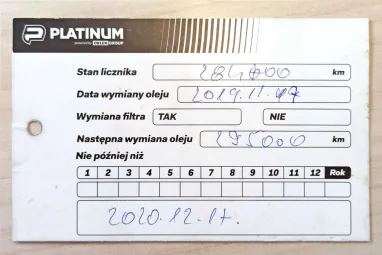 PLATINUM
powered by ORLEN GROUP
Stan licznika 284000 km
Data wymiany oleju 2019.11.17
Wymiana filtra TAK NIE
Następna wymiana oleju 295000 km
Nie później niż
1 2 3 4 5 6 7 8 9 10 11 12 Rok
2020.12.17.